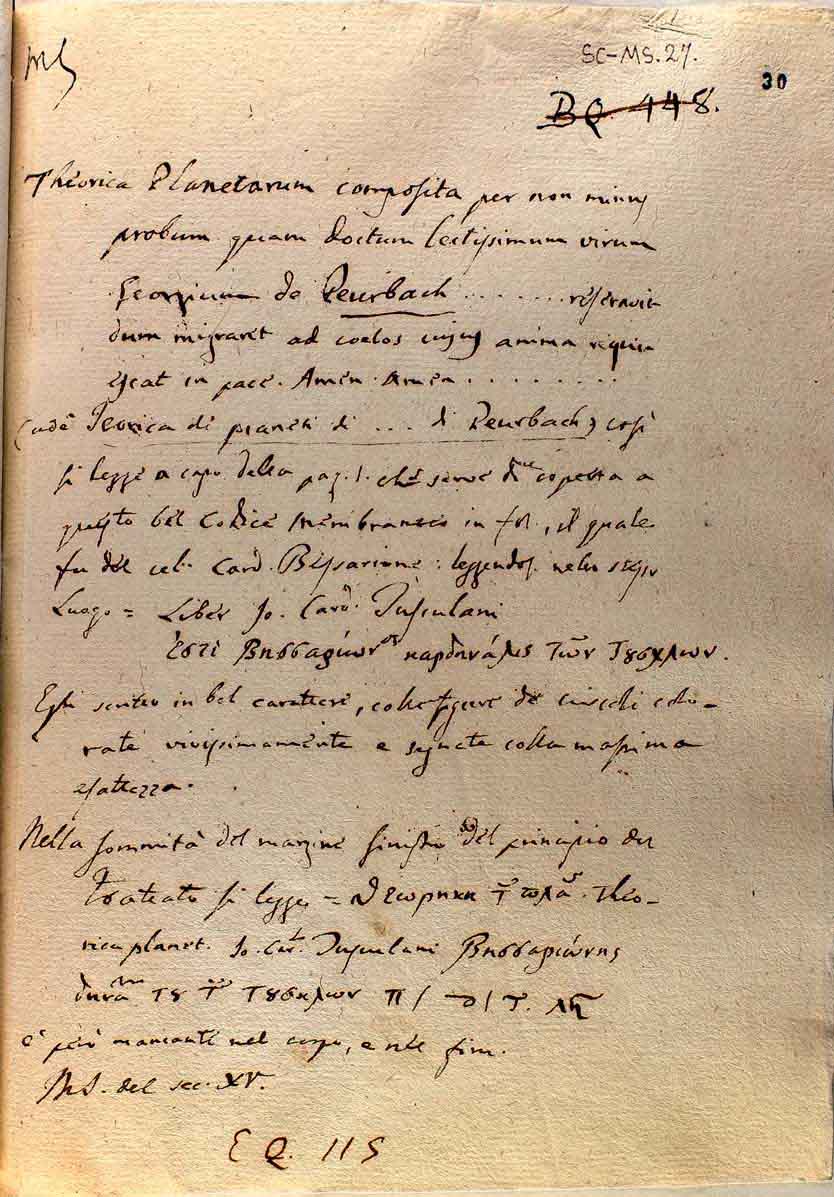 MS
SC-MS.27.
30
BQ 448.
Theorica Planetarum composita per non minus
probum quam doctum lectissimum virum
Georgium de Peurbach ........ reseravit
dum migraret ad coelos cujus anima requi
escat in pace. Amen Amen ........
Teorica di pianeti di ... di Peurbach) così
si legge a capo della pag. 1. che serve di coperta a
questo bel Codice membranaceo in fol, il quale
fu del cel. Card. Bessarione: leggendosi nello stesso
Luogo = Liber Jo. Card. Tusculani
ἐστὶ Βησσαρίωνος καρδηνάλις τῶν Τουσκλων.
Egli scritto in bel carattere, colle figure de circoli colo-
rate vivissimamente e segnate colla massima
esattezza.
Nella sommità del margine sinistro del principio del
trattato si legge = θεωρηκη Theo-
rica planet. Jo. Car. Tusculani Βησσαριώνης
του Τουσκλων
è però mancante nel corpo, e nel fin.
MS. del sec. XV.
EQ. 115